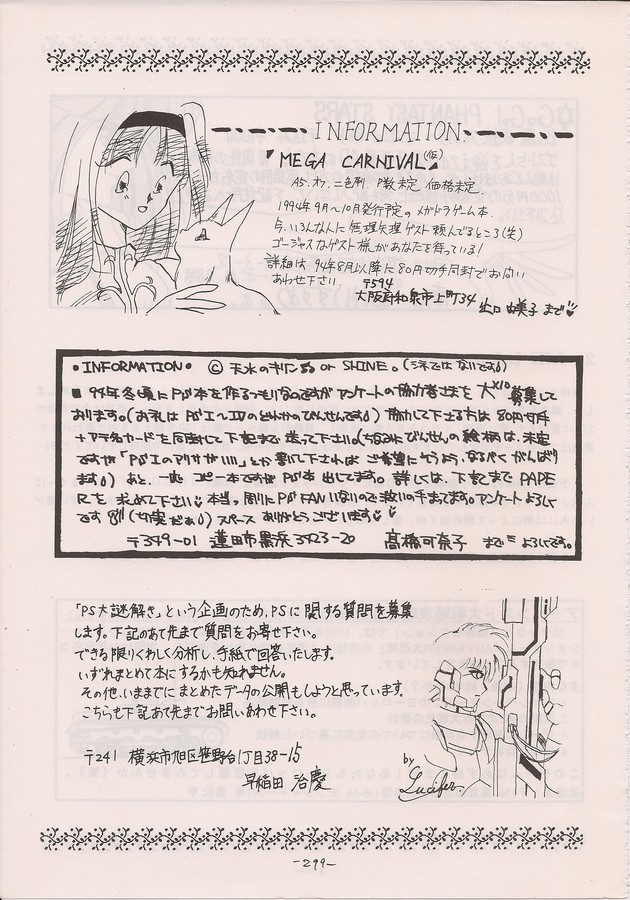 INFORMATION
「MEGA CARNIVAL(仮)」
A5.オフ.二色刷 P数未定 価格未定.
1994年9月〜10月発行予定のメガドラゲーム本
今、いろんな人に無理矢理ゲスト頼んでるところ(笑)
ゴージャスなゲスト様があなたを待っている!
詳細は、94年8月以降に80円切手同封でお問い
あわせ下さい.
〒594
大阪府和泉市上町34
出口 由美子 まで
•INFORMATION• © 天水のキリン or SHINE。
■ 94年冬頃にPS本を作るつもりなのですがアンケートの協力者さまを 大×10 募集して
おります。(お礼はPSI〜IVのどれかのびんせんです) 協力して下さる方は80円切手
+アテ名カードを同封にて下記まで送って下さい。(ちなみにびんせんの絵柄は、未定
ですが「PSIのアリサがいい」とか書いて下されば ご希望にそうよう、なるべくがんばり
ます) あと、一応 コピー本ですがPS本出してます。詳しくは、下記まで PAPE
Rを 求めて下さい 本当、周りにPS FANいないので救いの手まってます。アンケートよろしく
です (切実だぁ) スペース ありがとうございます
〒349-01 蓮田市黒浜3923-20 高橋可奈子 まで よろしくです。
「PS大謎解き」という企画のため、PSに関する質問を募集
します。下記のあて先まで質問をお寄せ下さい。
できる限りくわしく分析し、手紙で回答いたします。
いずれまとめて本にするかも知れません。
その他、いままでにまとめたデータの公開もしようと思っています。
こちらも下記あて先までお問いあわせ下さい。
〒241 横浜市旭区笹野台1丁目38-15
早稲田 治慶
by
Lucifer.
-299-